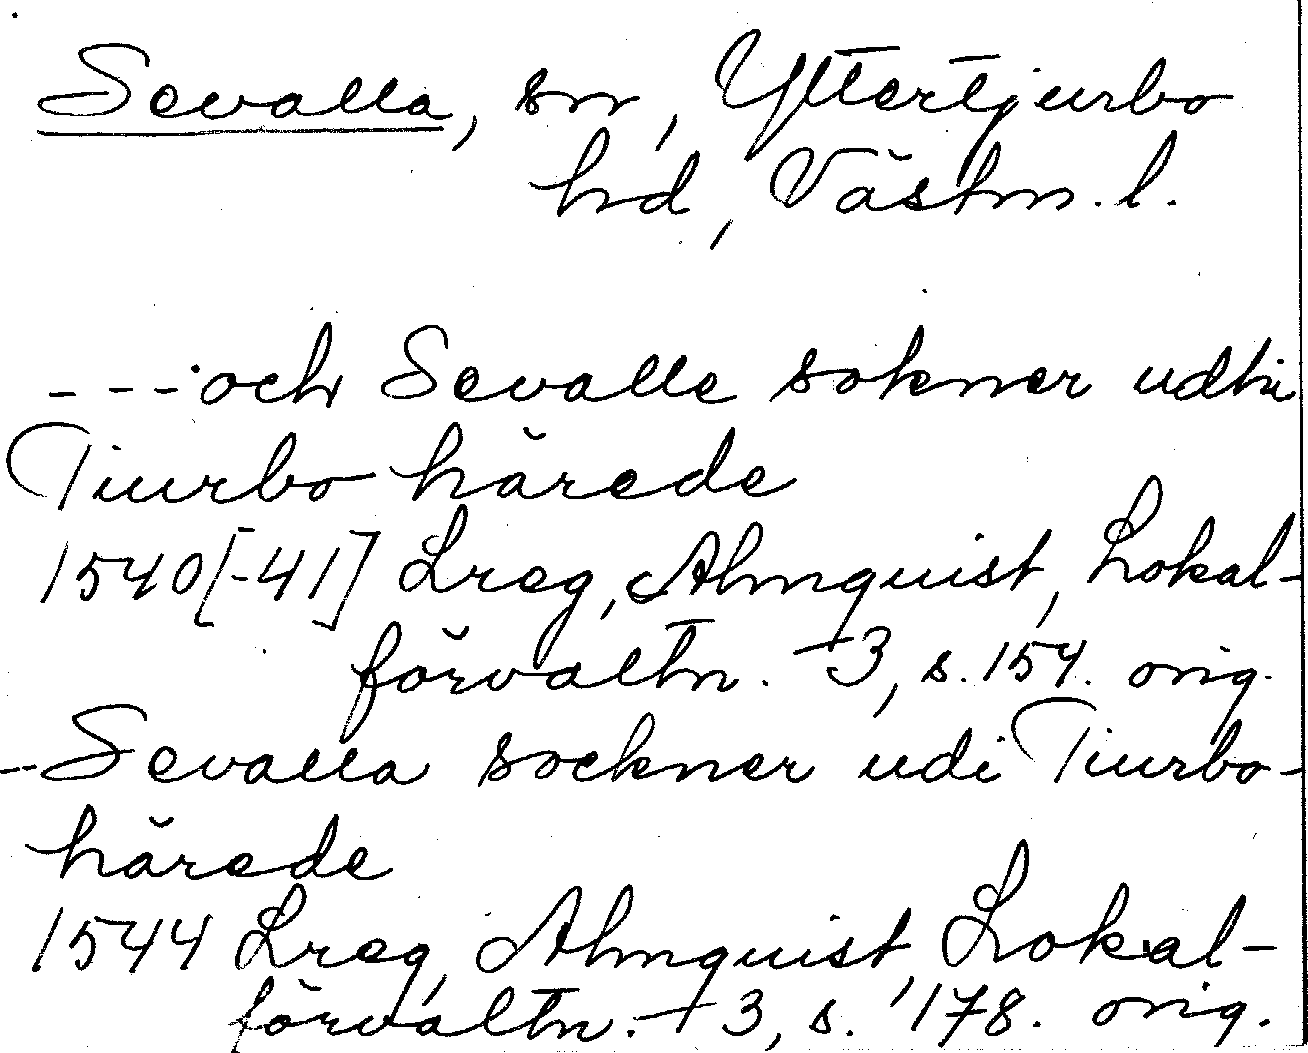 Sevalla, sn, Yttertjurbo
hd, Västm. l.
---och Sevalle sokner udhi
Tiurbo härede
1540[-41] Lreg, Almquist, Lokal-
förvaltn. 3, s. 154. orig.
-Sevalla sockner udi Tiurbo-
härede
1544 Lreg, Almquist, Lokal-
förvaltn. 3, s. 178. orig.